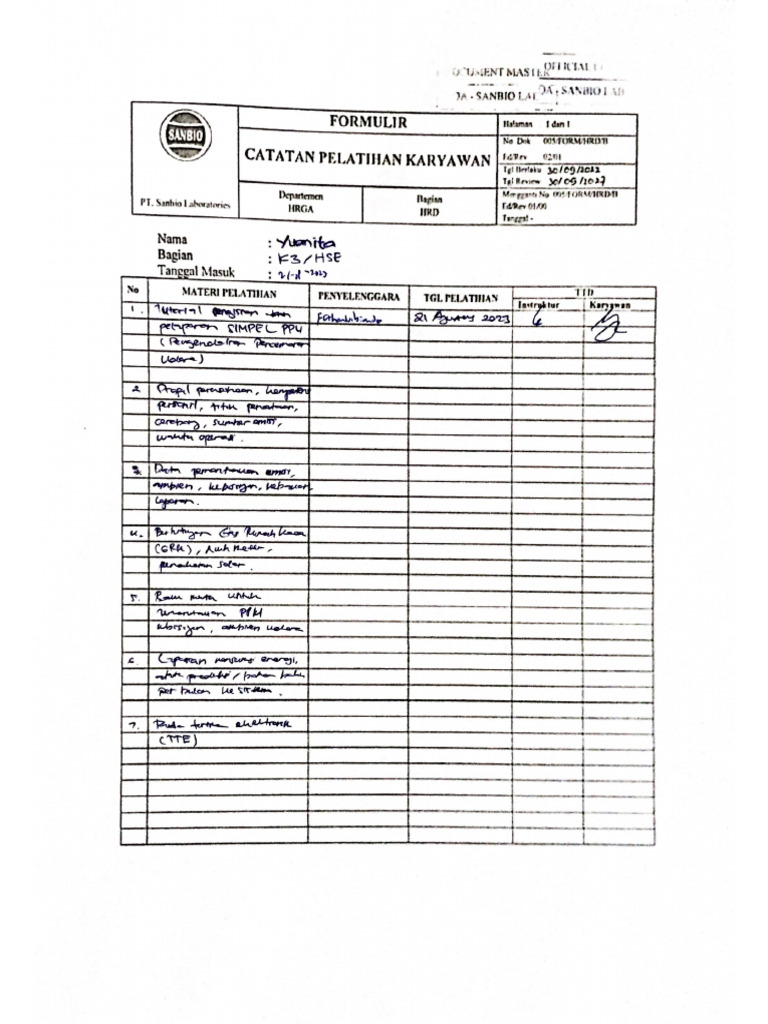 DOCUMENT MASTER
OFFICIAL
QA - SANBIO LAB
QA - SANBIO LAB
SANBIO
PT. Sanbio Laboratories
FORMULIR
CATATAN PELATIHAN KARYAWAN
Departemen
HRGA
Bagian
HRD
Halaman 1 dari 1
No Dok 005/FORM/HRD/B
Ed/Rev 02/01
Tgl Berlaku 30/09/2022
Tgl Review 30/09/2027
Mengganti No 005/FORM/HRD/B
Ed/Rev 01/00
Tanggal -
Nama : Yuanita
Bagian : K3/HSE
Tanggal Masuk :
No MATERI PELATIHAN PENYELENGGARA TGL PELATIHAN TTD
Instruktur Karyawan
1. Tutorial pengisian dan 21 Agustus 2023
pelaporan SIMPEL PPU
(Pengendalian Pencemaran
Udara)
2. Profil perusahaan,
personil, titik penaatan,
cerobong, sumber emisi,
waktu operasi.
3. Data pemantauan emisi,
ambien, kebisingan, kebauan
laporan.
4. Perhitungan Gas Rumah Kaca
(GRK),
pemakaian solar.
5. untuk
pemantauan
kebisingan, ambien udara
6. Laporan energi,
produksi / bahan baku
per bulan ke
7. Tanda tangan elektronik
(TTE)